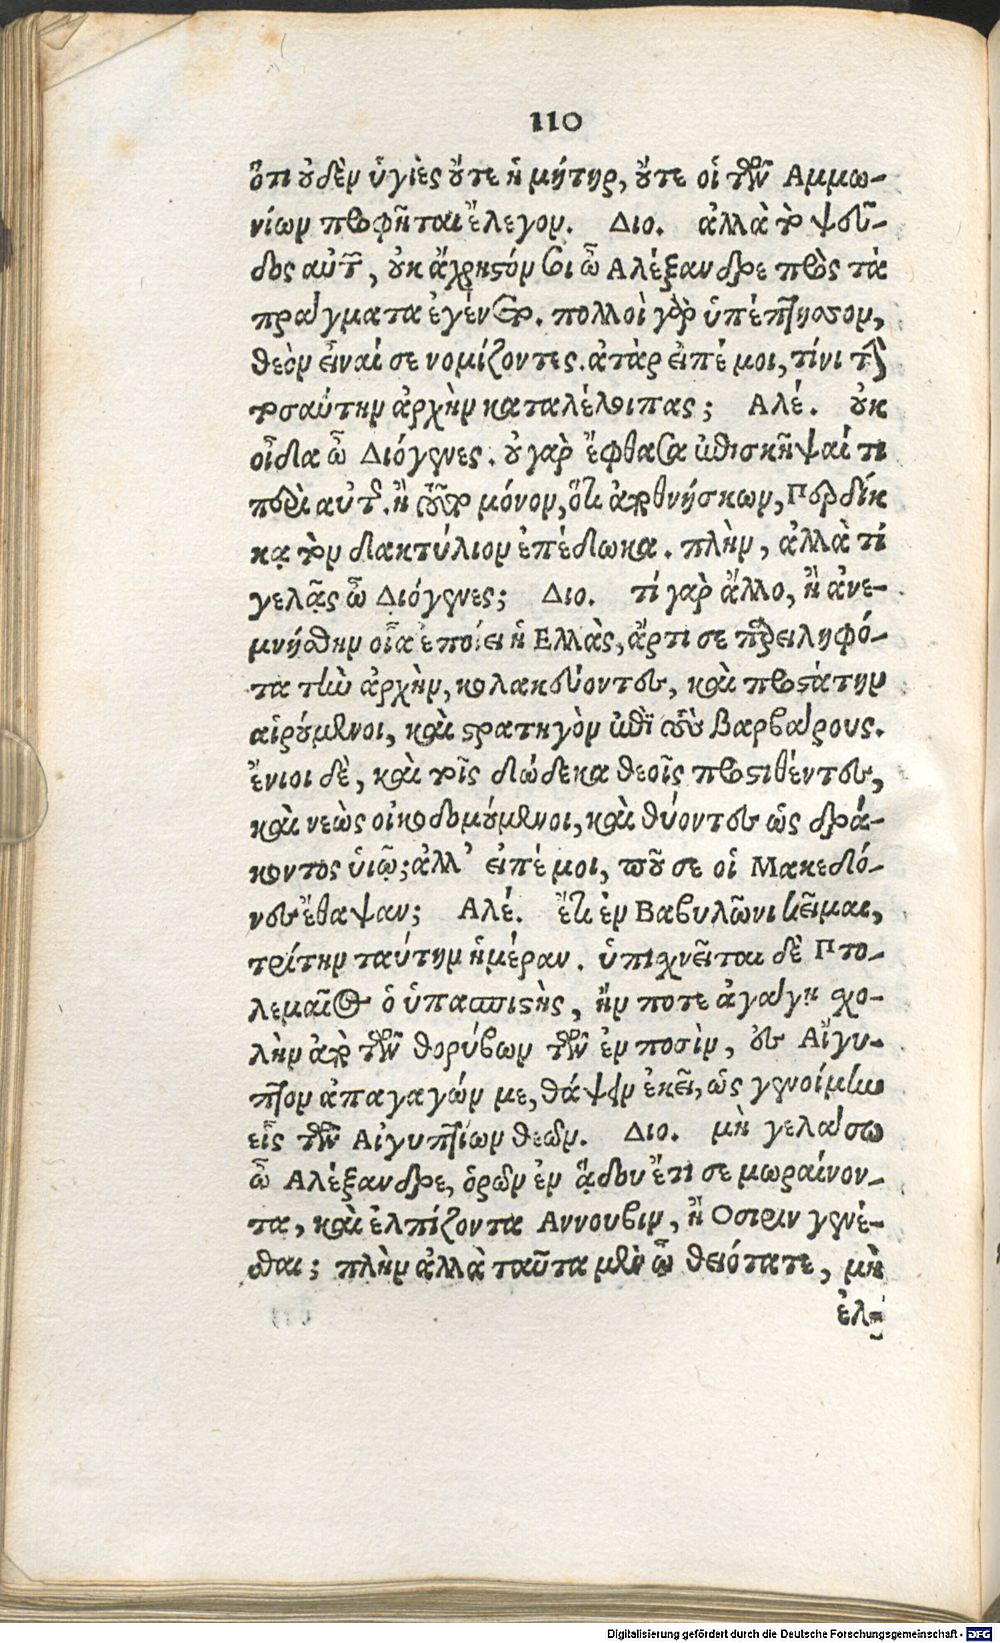 110
ὅτι οὐδὲν ὑγιὲς οὔτε ἡ μήτηρ, οὔτε οἱ τῶν Αμμω-
νίων προφῆται ἔλεγον. Διο. ἀλλὰ τὸ ψεῦ-
δος αὐτῶν, οὐκ ἄχρηστόν σοι ὦ Αλέξανδρε πρὸς τὰ
πράγματα ἐγένετο. πολλοὶ γὰρ ὑπέπτησσον,
θεὸν εἶναί σε νομίζοντες. ἀτὰρ εἰπέ μοι, τίνι τὴν
τοσαύτην ἀρχὴν καταλέλοιπας; Αλέ. οὐκ
οἶδα ὦ Διόγενες. οὐ γὰρ ἔφθασα ἐπισκῆψαί τι
περὶ αὐτῆς. ἢ τοῦτο μόνον, ὅτι ἀποθνήσκων, Περδίκ
κᾳ τὸν δακτύλιον ἐπέδωκα. πλὴν, ἀλλὰ τί
γελᾷς ὦ Διόγενες; Διο. τί γὰρ ἄλλο, ἢ ἀνε-
μνήσθην οἷα ἐποίει ἡ Ελλὰς, ἄρτι σε παρειληφό-
τα τὴν ἀρχὴν, κολακεύοντες, καὶ προστάτην
αἱρούμενοι, καὶ στρατηγὸν ἐπὶ τοὺς βαρβάρους.
ἔνιοι δὲ, καὶ τοῖς δώδεκα θεοῖς προστιθέντες,
καὶ νεὼς οἰκοδομούμενοι, καὶ θύοντες ὡς δρά-
κοντος ὑιῷ; ἀλλ’ εἰπέ μοι, ποῦ σε οἱ Μακεδό-
νες ἔθαψαν; Αλέ. ἔτι ἐν Βαβυλῶνι κεῖμαι,
τρίτην ταύτην ἡμέραν. ὑπισχνεῖται δὲ Πτο-
λεμαῖος ὁ ὑπασπιστὴς, ἤν ποτε ἀγάγῃ σχο-
λὴν ἀπὸ τῶν θορύβων τῶν ἐν ποσὶν, ἐς Αἴγυ-
πτον ἀπαγαγών με, θάψειν ἐκεῖ, ὡς γενοίμην
εἷς τῶν Αἰγυπτίων θεῶν. Διο. μὴ γελάσω
ὦ Αλέξανδρε, ὁρῶν ἐν ᾅδου ἔτι σε μωραίνον-
τα, καὶ ἐλπίζοντα Αννουβιν, ἢ Οσιριν γενέ-
σθαι; πλὴν ἀλλὰ ταῦτα μὲν ὦ θειότατε, μὴ
ἐλ=
Digitalisierung gefördert durch die Deutsche Forschungsgemeinschaft - DFG